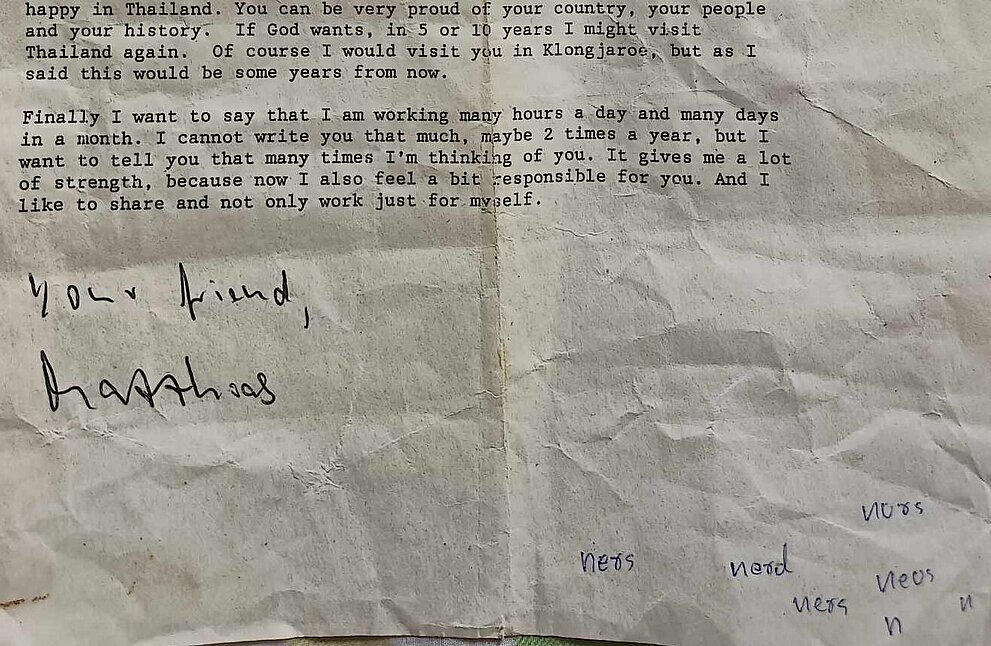 happy in Thailand. You can be very proud of your country, your people
and your history.  If God wants, in 5 or 10 years I might visit
Thailand again.  Of course I would visit you in Klongjaroe, but as I
said this would be some years from now.
Finally I want to say that I am working many hours a day and many days
in a month. I cannot write you that much, maybe 2 times a year, but I
want to tell you that many times I'm thinking of you. It gives me a lot
of strength, because now I also feel a bit responsible for you. And I
like to share and not only work just for myself.
Your friend,
Matthias
nurs
ners
nerd
neos
ners
n
n